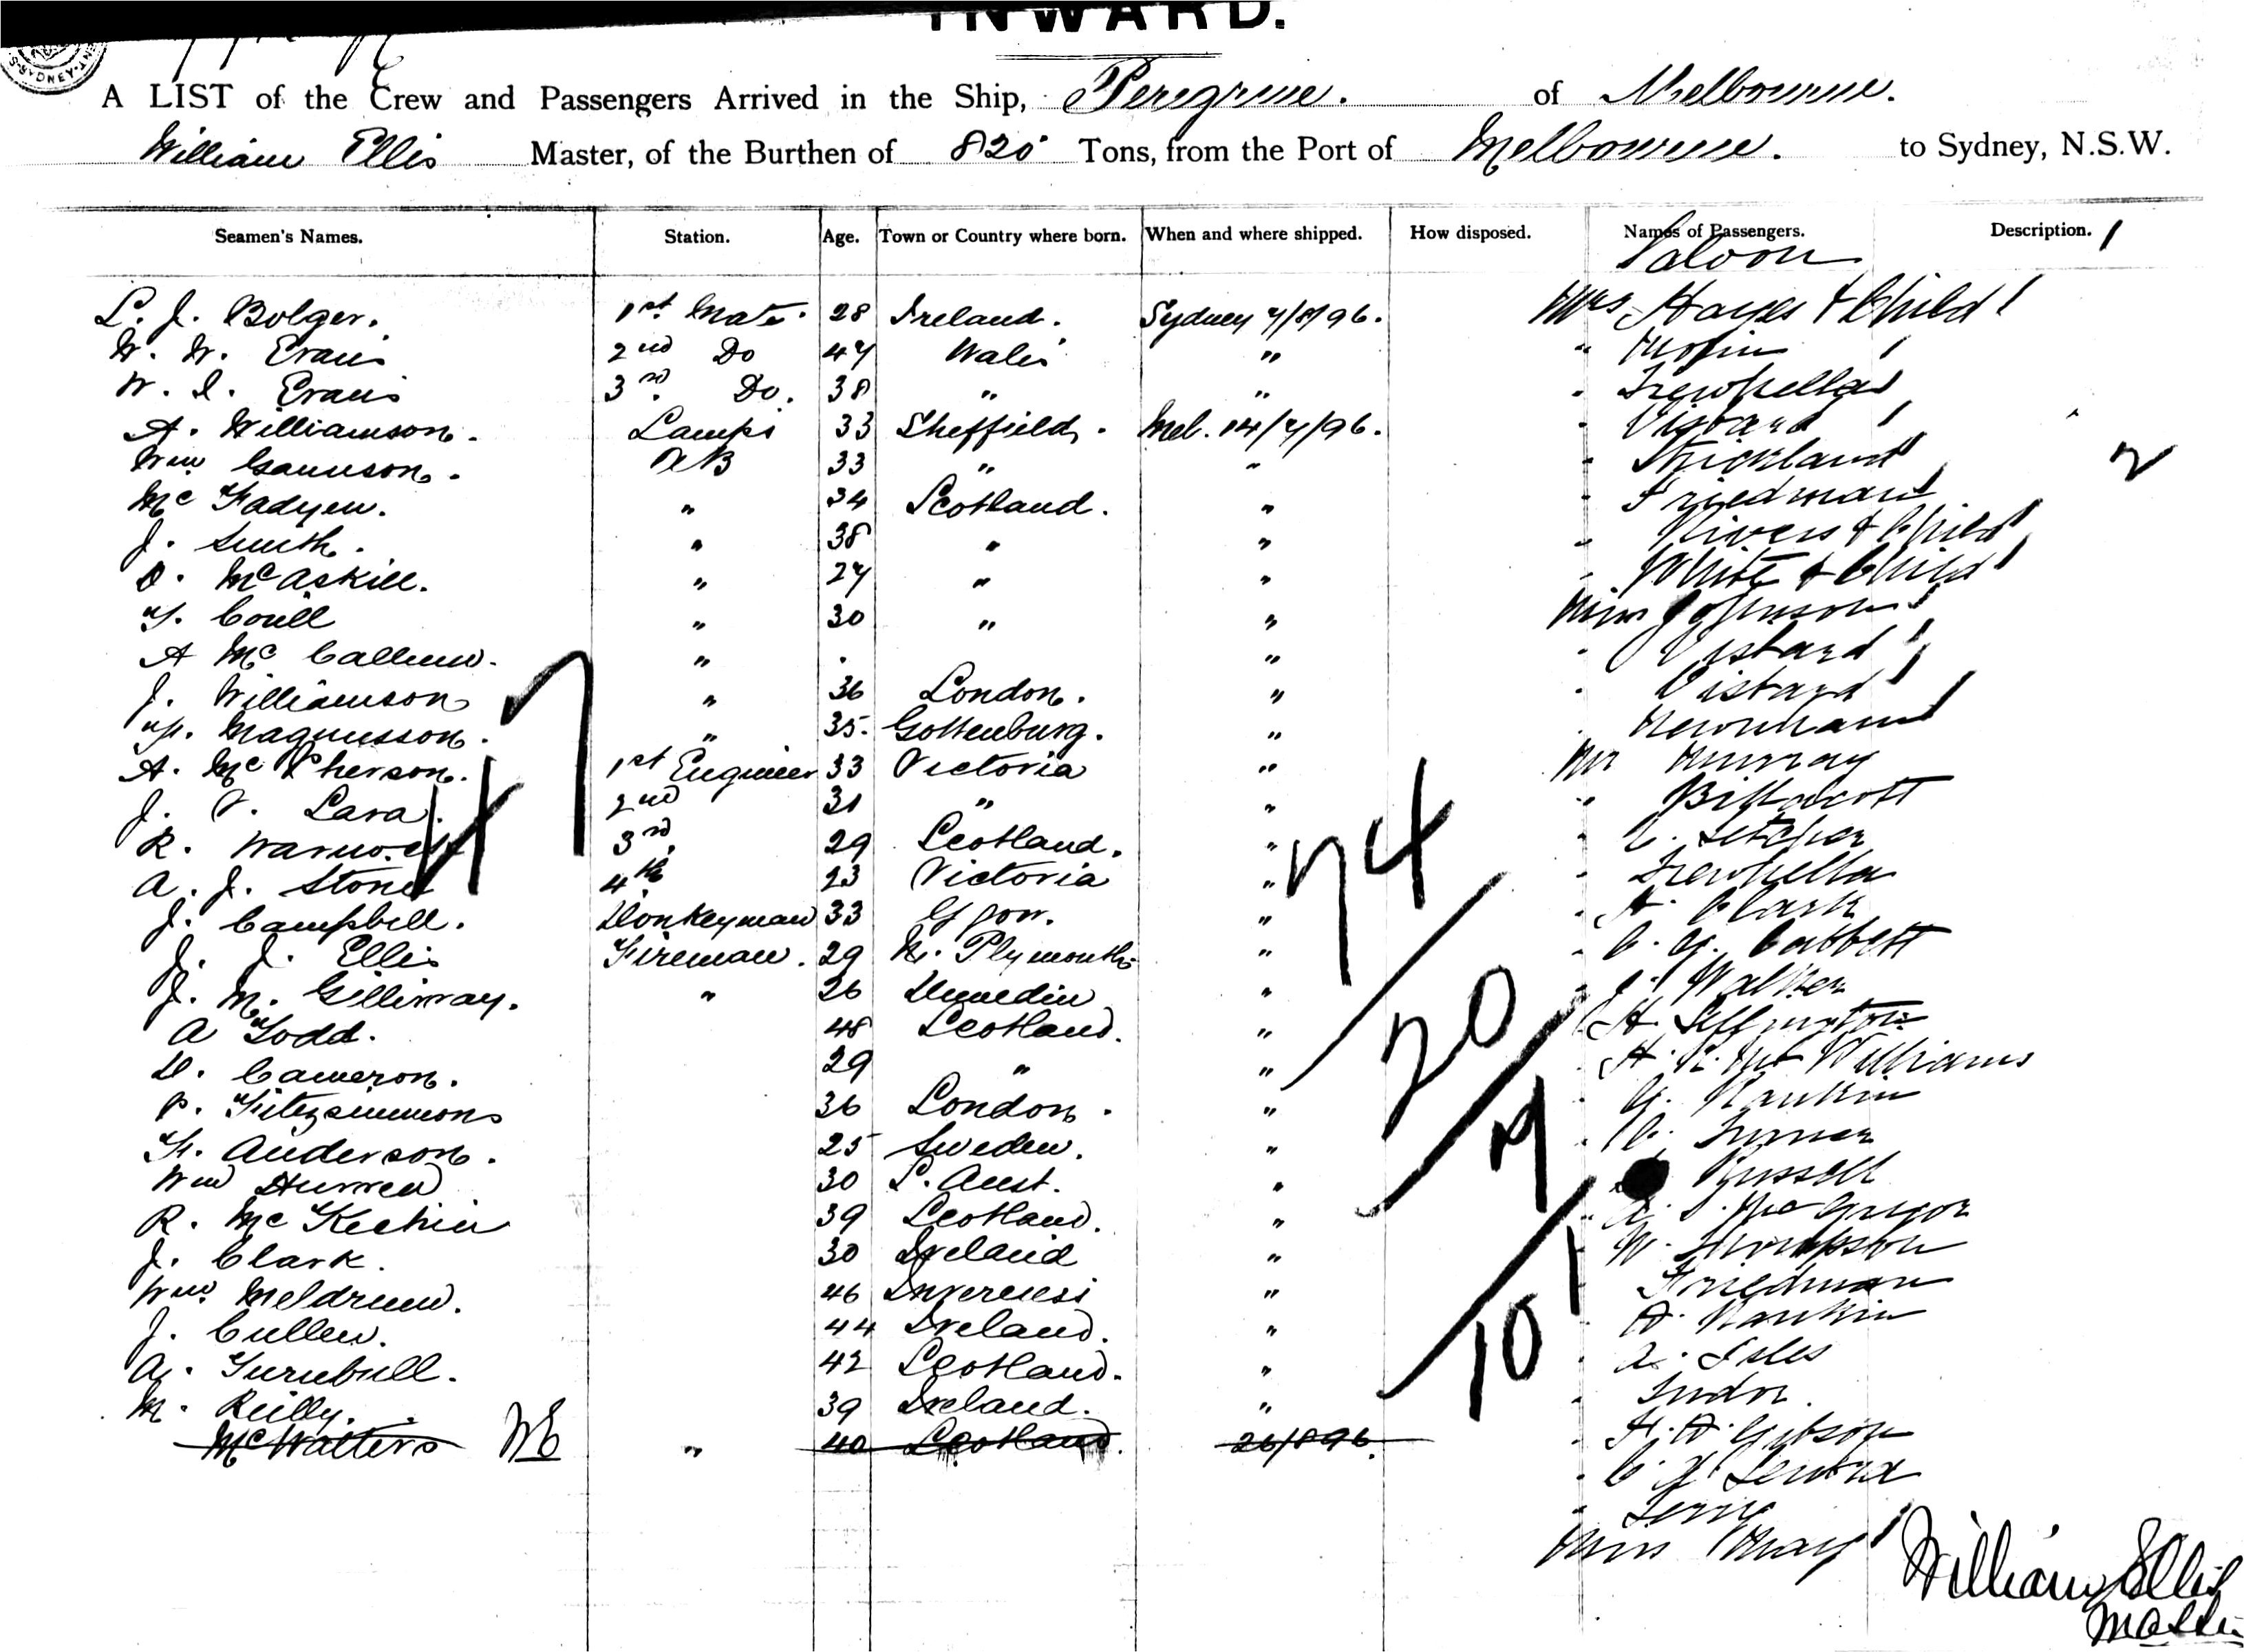 INWARD.
A LIST of the Crew and Passengers Arrived in the Ship, Peregrine. of Melbourne.
William Ellis Master, of the Burthen of 820 Tons, from the Port of Melbourne. to Sydney, N.S.W.
Seamen's Names. Station. Age. Town or Country where born. When and where shipped. How disposed. Names of Passengers. Description. 1
Saloon
L. J. Bolger. 1st Mate. 28 Ireland. Sydney 7/8/96. Mrs Hayes & Child
W. W. Evans 2nd Do 47 Wales " "
W. I. Evans 3rd. Do. 38 " " " Trewhella
A. Williamson. Lamps 33 Sheffield. Mel. 14/7/96. "
Wm AB 33 " " " Strickland 2
Mc Fadyen. " 34 Scotland. " " Friedman
J. Smith. " 38 " " " Rivers & Child
D. McAskill. " 27 " " " White & Child
T. Coull " 30 " " Miss Johnson
A Mc Callum. " " "
J. Williamson " 36 London. " "
Magnusson. " 35. Gottenburg. " " Newnham
A. McPherson. 1st Engineer 33 Victoria " Mr Murray
J. Lara. 2nd 31 " " "
R. 3rd. 29 Scotland. " "
A. J. Stone 4th 23 Victoria " " Trewhella
J. Campbell. Donkeyman 33 Ggow. " " Clark
J. J. Ellis Fireman. 29 N. Plymouth " "
J. M. Gilliway. " 26 Dunedin " " J. Walker
A Todd. 48 Scotland. "
D. Cameron. 29 " " Williams
P. Fitzsimmons 36 London. " " G. Rankin
F. Anderson. 25 Sweden. " " Turner
Wm 30 S. Aust. " Russell
R. McKechin 39 Scotland. " McGregor
J. Clark. 30 Ireland " W. Thompson
Wm Meldrum. 46 Inverness " Friedman
J. Cullen. 44 Ireland. " Rankin
A. Turnbull. 42 Scotland. " " A. Isles
M. Reilly. 39 Ireland. " " Tudor
McWatters WE " 40 Scotland. 26/8 96. " Gibson
47
74
20
7
10 1
Miss May
William Ellis
Master